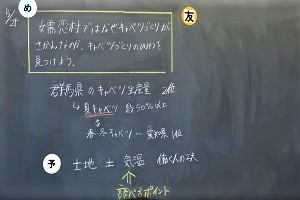 5/25
め
友
嬬恋村ではなぜキャベツづくりが
さかんなのか、キャベツづくりのひみつを
見つけよう。
群馬県のキャベツ生産量 2位
↳夏キャベツ 約50%以上
春・冬キャベツ…愛知県 1位
予
土地 土 気温 働く人の工夫
調べるポイント